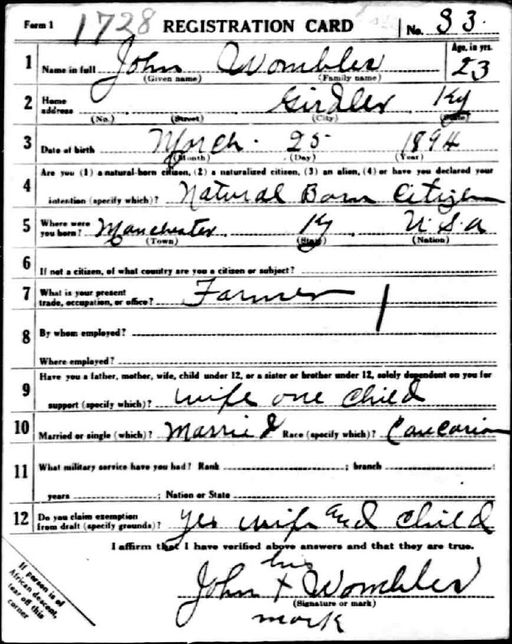 Form 1 1728 REGISTRATION CARD No. 33
1 Name in full John Wombles Age, in yrs. 23
(Given name) (Family name)
2 Home address Girdler Ky
(No.) (Street) (City) (State)
3 Date of birth March 25 1894
(Month) (Day) (Year)
4 Are you (1) a natural-born citizen, (2) a naturalized citizen, (3) an alien, (4) or have you declared your
intention (specify which)? Natural Born Citizen
5 Where were you born? Manchester Ky U.S.A
(Town) (State) (Nation)
6 If not a citizen, of what country are you a citizen or subject?
7 What is your present trade, occupation, or office? Farmer
8 By whom employed?
Where employed?
9 Have you a father, mother, wife, child under 12, or a sister or brother under 12, solely dependent on you for
support (specify which)? wife one child
10 Married or single (which)? Married Race (specify which)? Caucasian
11 What military service have you had? Rank ; branch ;
years ; Nation or State
12 Do you claim exemption from draft (specify grounds)? Yes wife and child
I affirm that I have verified above answers and that they are true.
his
John X Wombles
(Signature or mark)
mark
If person is of
African descent,
tear off this
corner